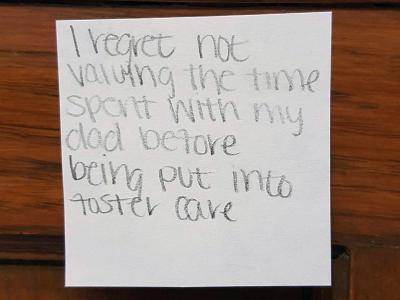 I regret not
valuing the time
spent with my
dad before
being put into
foster care